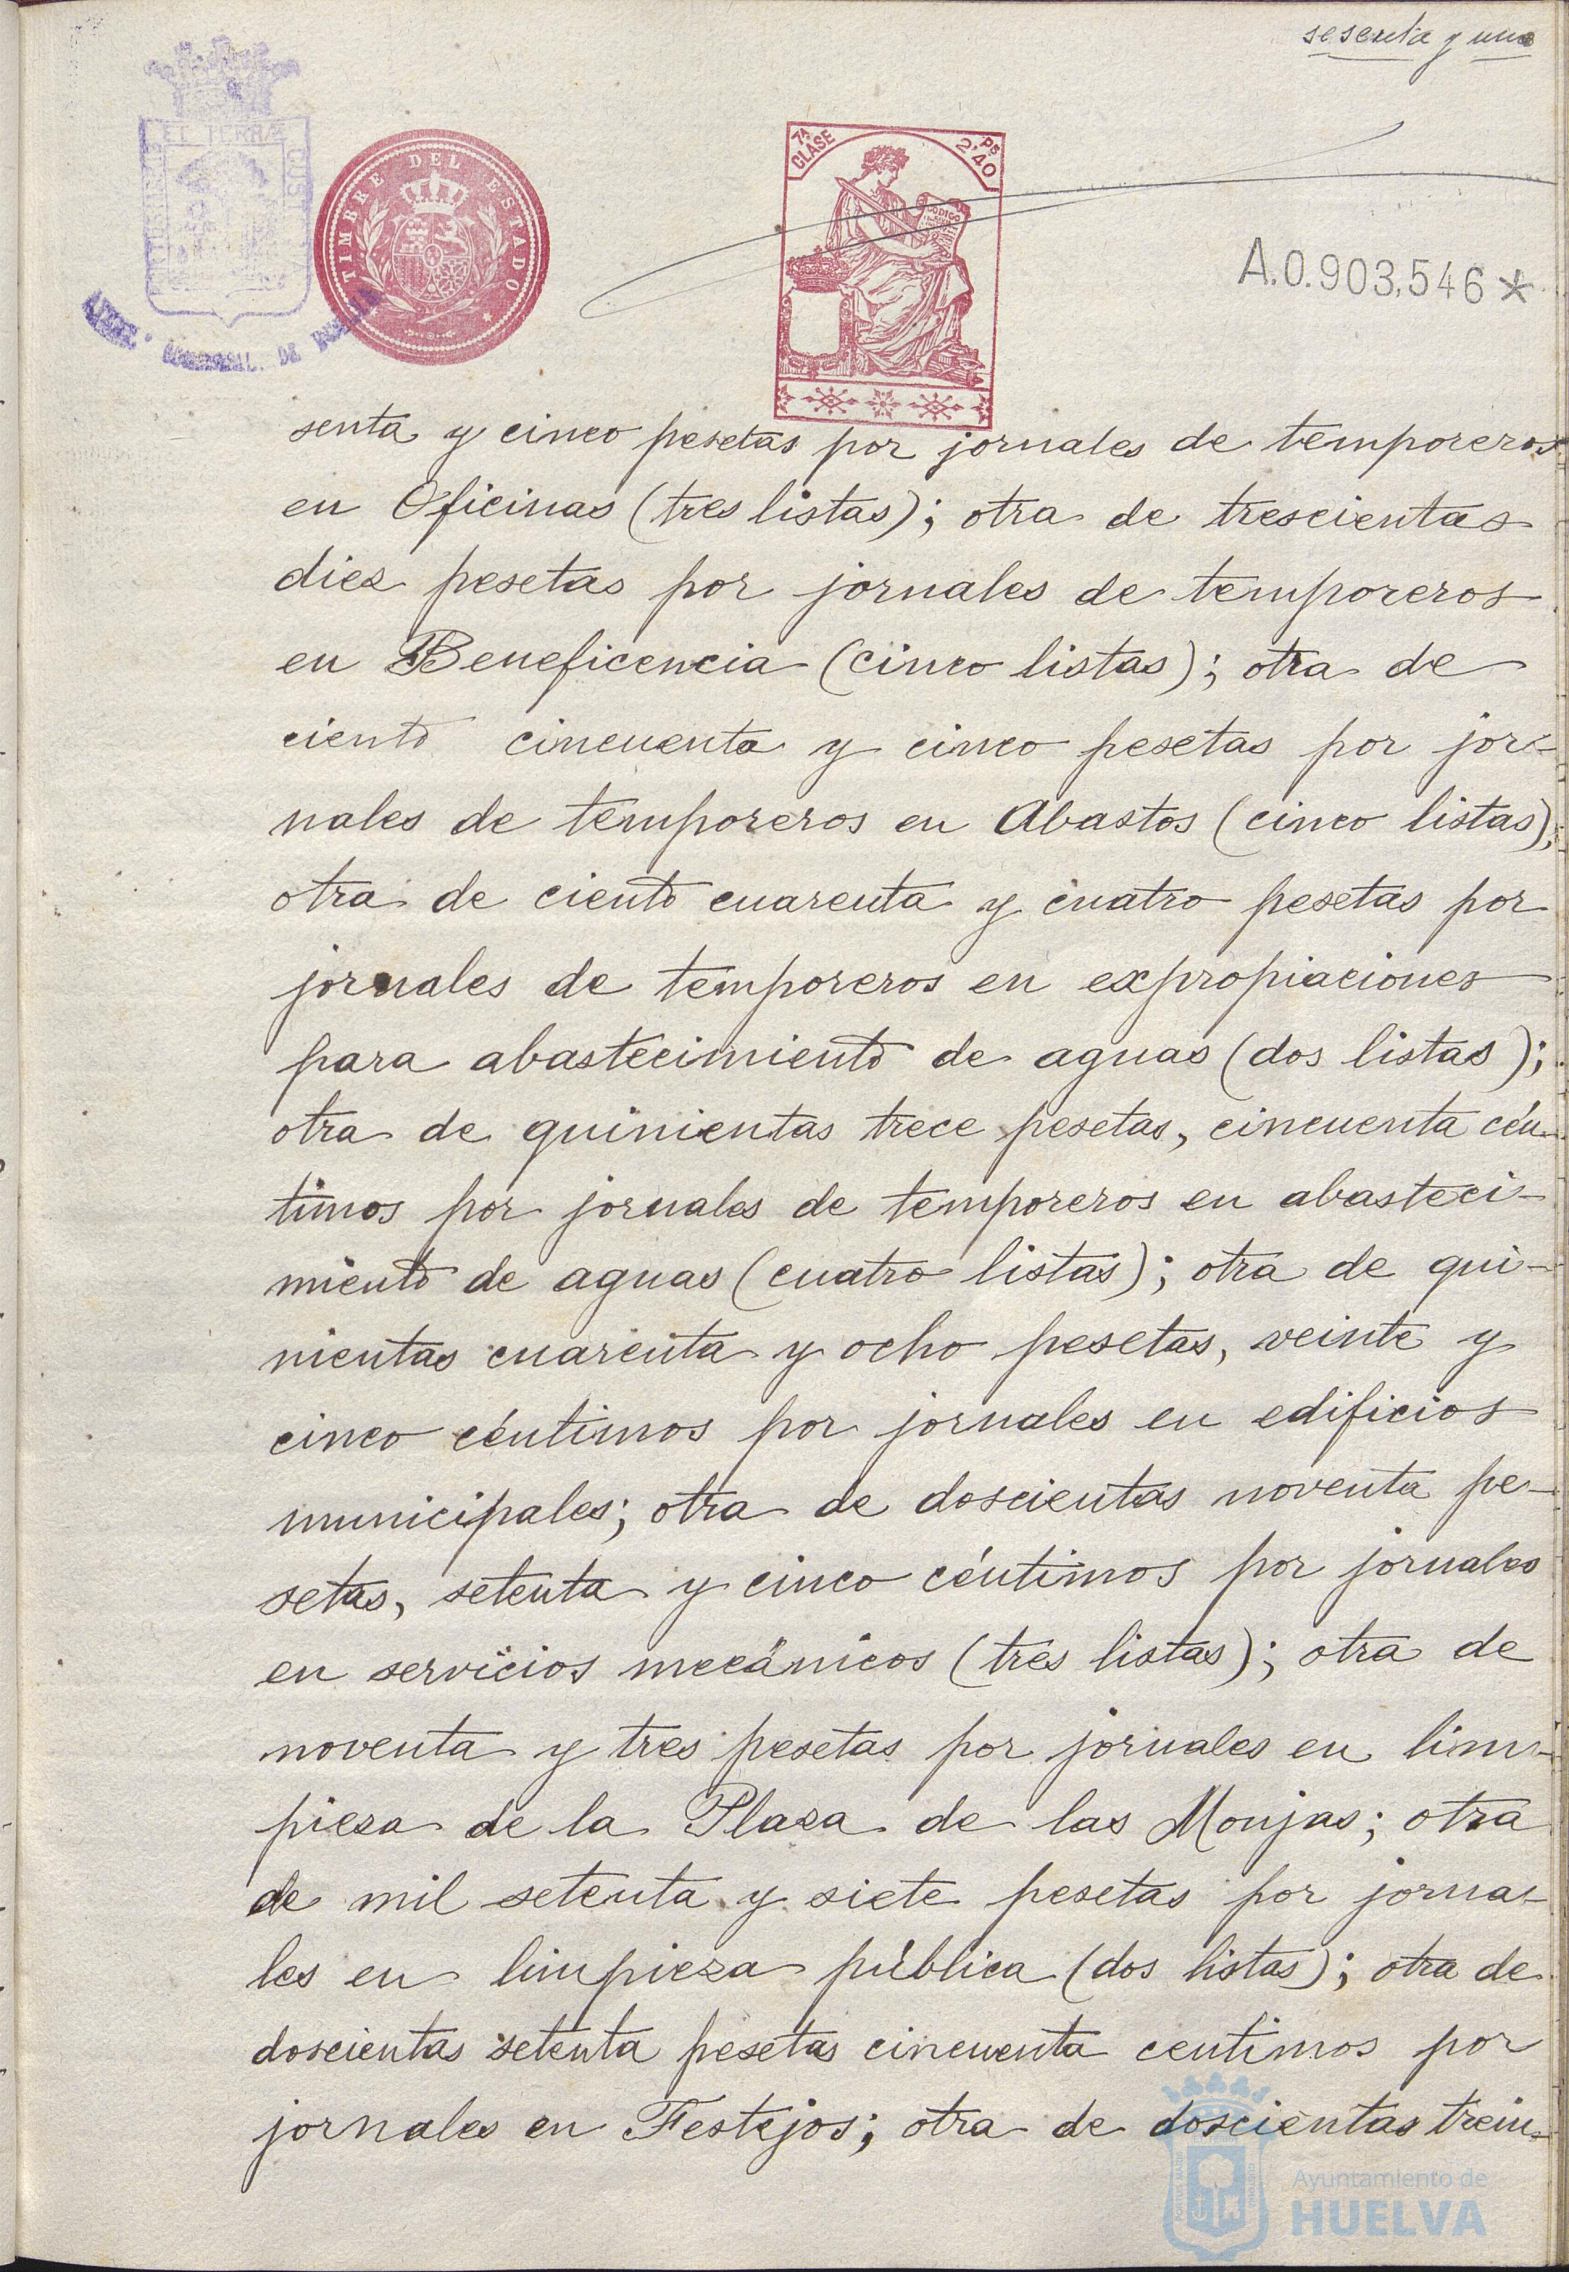 sesenta y uno
ET TERRÆ
CUSTODIA
TIMBRE DEL ESTADO
7ª CLASE
Ps 2'40
CODIGO
A.0.903,546*
DE
senta y cinco pesetas por jornales de temporeros
en Oficinas (tres listas); otra de trescientas
diez pesetas por jornales de temporeros
en Beneficencia (cinco listas); otra de
ciento cincuenta y cinco pesetas por jor-
nales de temporeros en Abastos (cinco listas);
otra de ciento cuarenta y cuatro pesetas por
jornales de temporeros en expropiaciones
para abastecimiento de aguas (dos listas);
otra de quinientas trece pesetas, cincuenta cén-
timos por jornales de temporeros en abasteci-
miento de aguas (cuatro listas); otra de qui-
nientas cuarenta y ocho pesetas, veinte y
cinco céntimos por jornales en edificios
municipales; otra de doscientas noventa pe-
setas, setenta y cinco céntimos por jornales
en servicios mecánicos (tres listas); otra de
noventa y tres pesetas por jornales en lim-
pieza de la Plaza de las Monjas; otra
de mil setenta y siete pesetas por jorna-
les en limpieza pública (dos listas); otra de
doscientas setenta pesetas cincuenta centimos por
jornales en Festejos; otra de doscientas trein-
Ayuntamiento de
HUELVA